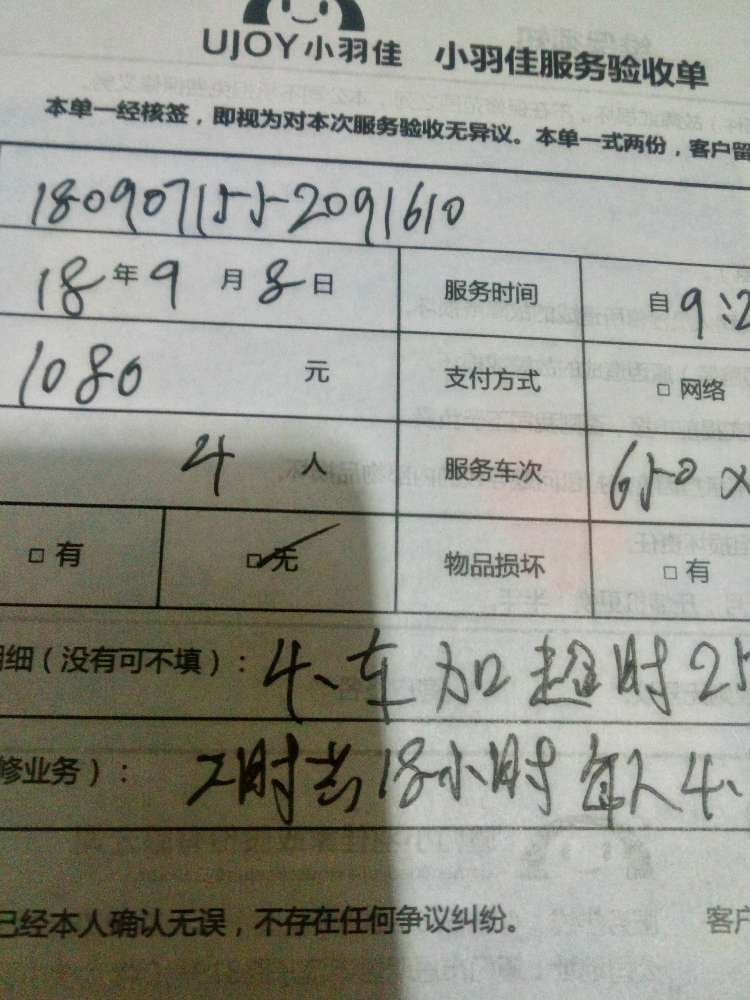 UJOY小羽佳 小羽佳服务验收单
本单一经核签，即视为对本次服务验收无异议。本单一式两份，客户留
1809071552091610
18年9月8日 服务时间 自9:2
1080 元 支付方式 □ 网络
4 人 服务车次 650×
□ 有 □ 无 物品损坏 □ 有
明细（没有可不填）： 小车加超时25
修业务）： 工时共18小时 每人4.
已经本人确认无误，不存在任何争议纠纷。 客户